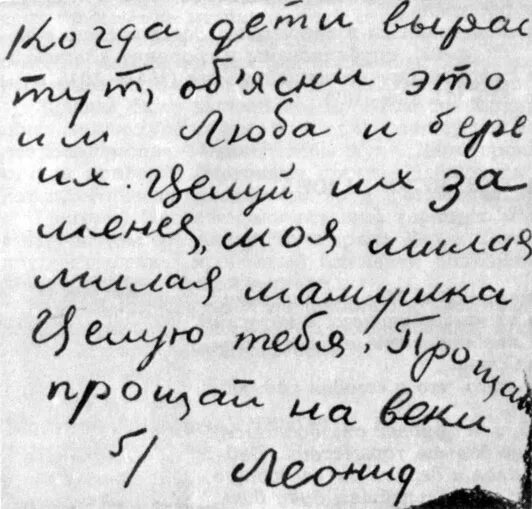 Когда дети вырас
тут, об'ясни это
им Люба и бере
их. Целуй их за
меня, моя милая
милая мамушка
Целую тебя. Прощай
прощай на веки
5/ Леонид